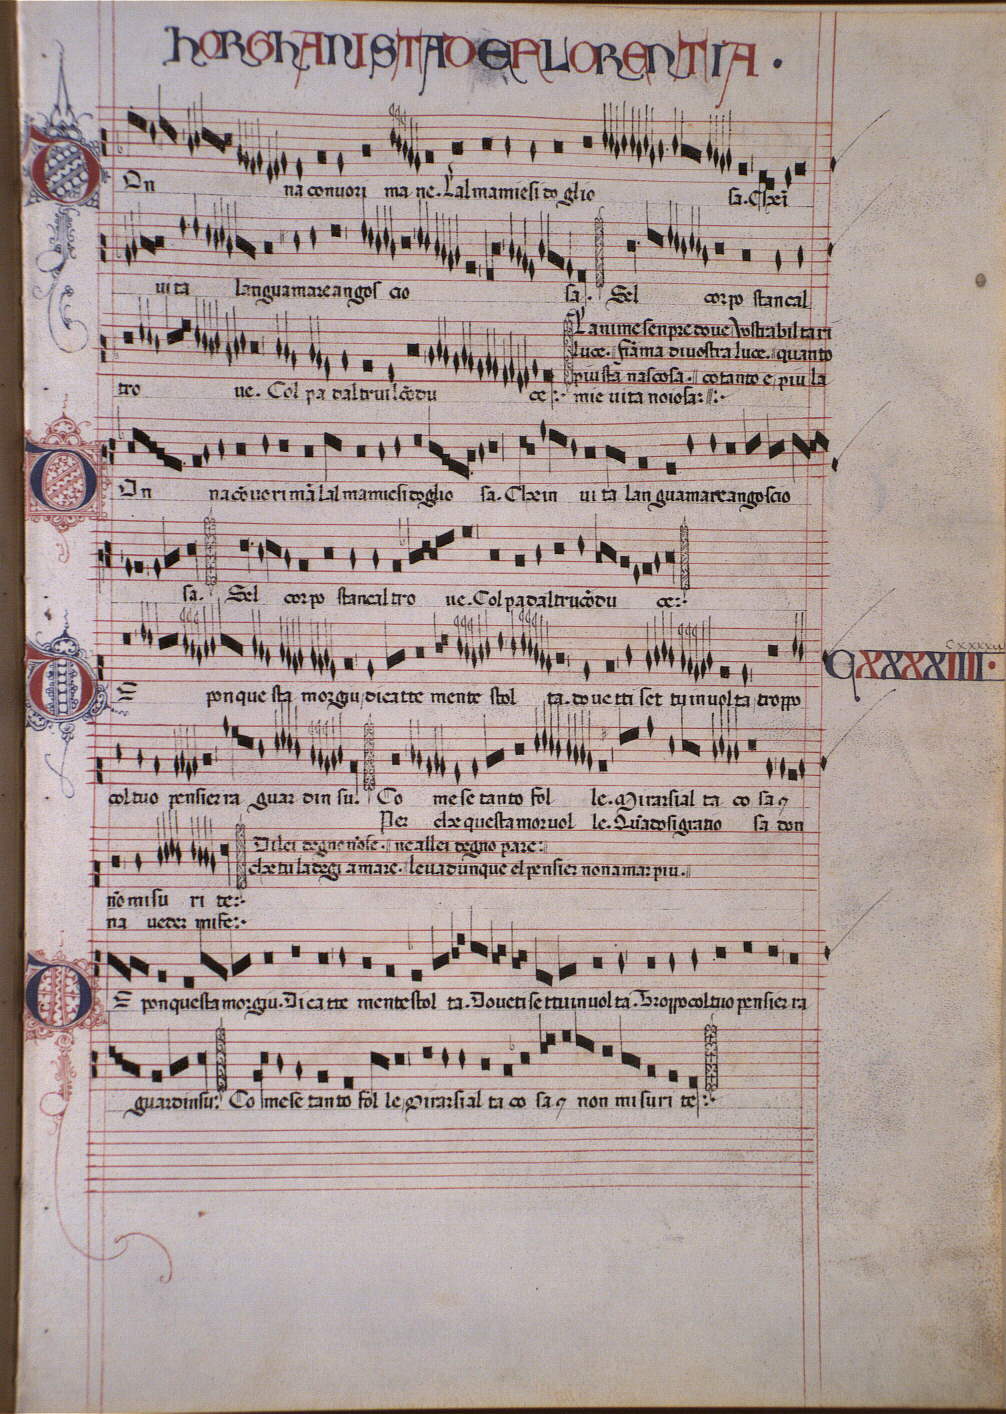 HORGHANISTA DE FLORENTIA.
On na con uo ri ma ne. Lal ma mi e si to glio sa. Chei
ui ta lan gua ma re an gos cio sa. Sel cor po stan cal
Lanime senpre doue vostra bilta ri
luce. fiāma di vostra luce. quanto
piu sta nascosa. cotanto e piu la
tro ue. Col pa dal trui lcōdu ce
mie uita noiosa:
On na cō uo ri mā lal ma mi e si to glio sa. Che in ui ta lan gua ma re an go scio
sa. Sel cor po stan cal tro ue. Col pa dal trui cōdu ce:
E pon que sta mor giu di ca tte men te stol ta. do ue tti set tu in uol ta troppo
CXXXXIIII.
col tuo pen sier ra guar din su: Co me se tan to fol le. Mi rar si al ta co sa
Per che questa mor uol le. sa don
Di lei degno nōse. ne allei degno pare:
che tu la degi amare. leua dunque el pensier non amar piu.
nō mi su ri te:
na ueder mife:
E pon questa mor giu. Di ca tte men te stol ta. Do ue ti se ttu in uol ta. Troppo col tuo pen sier ra
guar din su: Co me se tan to fol le Mi rar si al ta co sa non mi su ri te: